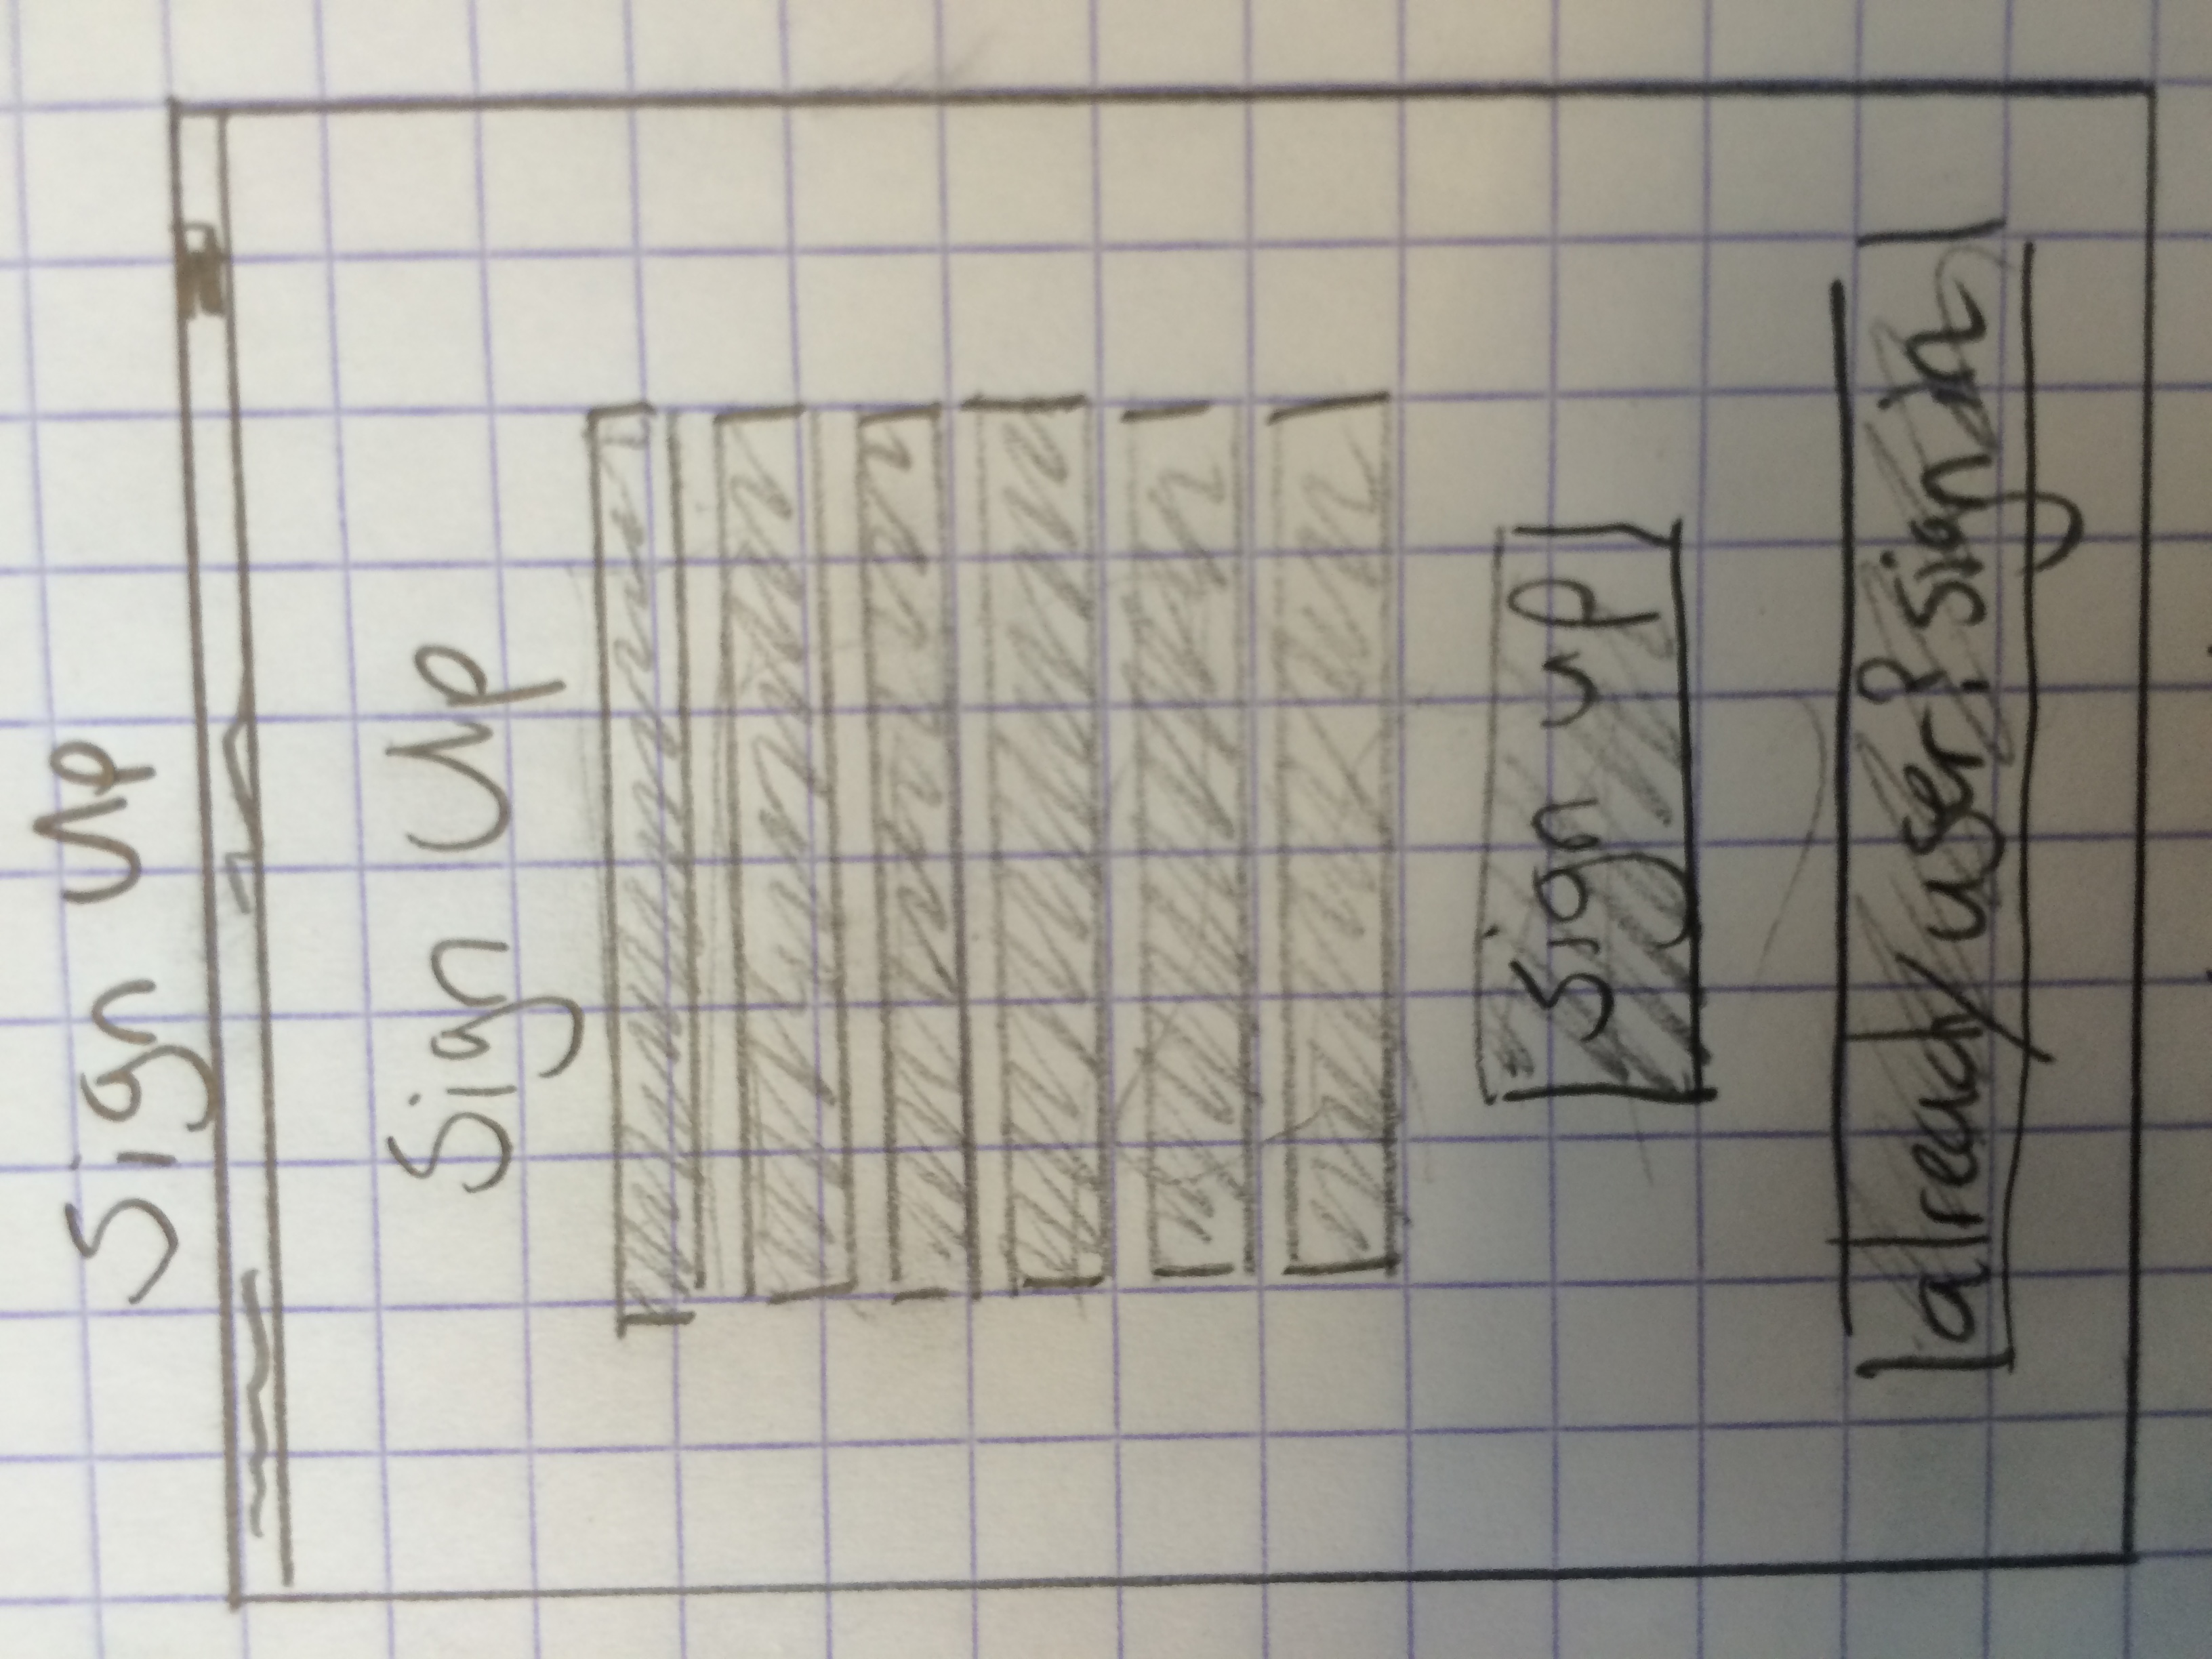 Sign Up
Sign Up
sign up
already user? sign in